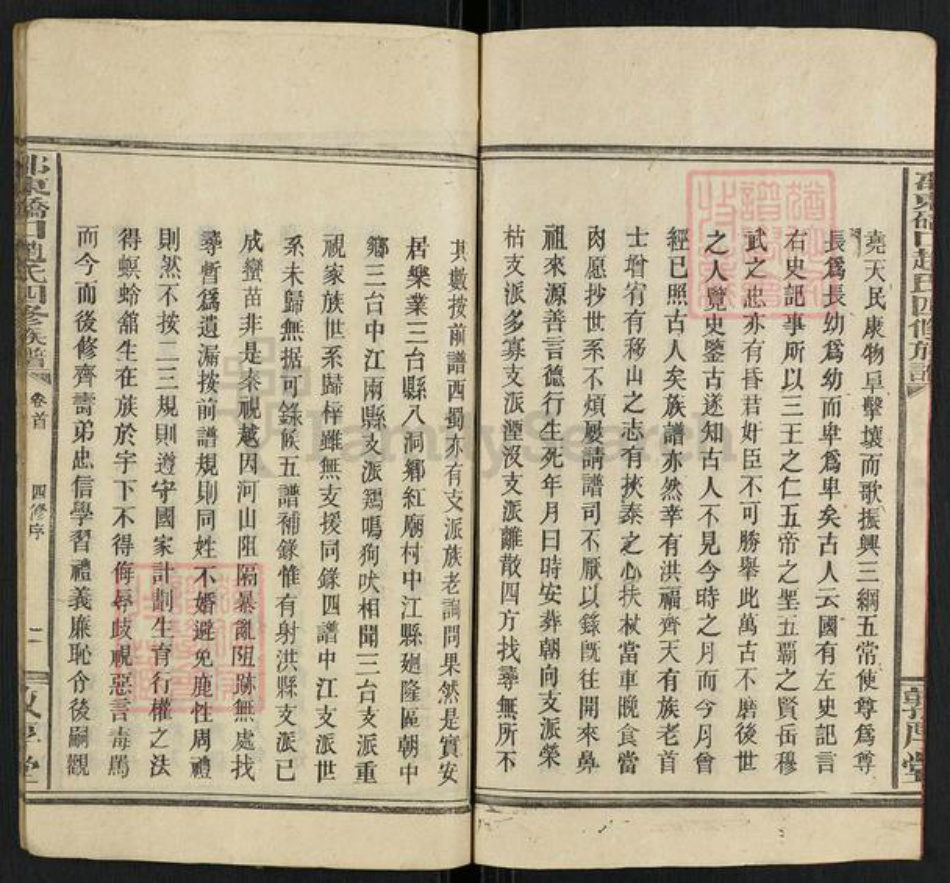 堯天民康物阜擊壤而歌振興三綱五常使尊爲尊
長爲長幼爲幼而卑爲卑矣古人云國有左史記言
右史記事所以三王之仁五帝之聖五覇之賢岳穆
武之忠亦有昏君奸臣不可勝舉此萬古不磨後世
之人覽史鑒古遂知古人不見今時之月而今月曾
經已照古人矣族譜亦然幸有洪福齊天有族老首
士增宥有移山之志有挾泰之心扶杖當車晚食當
肉愿抄世系不煩屡請譜司不厭以錄既往開來鼻
祖來源善言德行生死年月日時安葬朝向支派榮
枯支派多寡支派湮沒支派離散四方找尋無所不
其數按前譜西蜀亦有支派族老詢問果然是實安
居樂業三台縣八洞鄉紅廟村中江縣廻隆區朝中
鄉三台中江兩縣支派鷄鳴狗吠相聞三台支派重
視家族世系歸梓雖無支援同錄四譜中江支派世
系未歸無据可錄候五譜補錄惟有射洪縣支派已
成蠻苗非是秦視越因河山阻隔暴亂阻跡無處找
尋暫爲遺漏按前譜規則同姓不婚避免鹿性周禮
則然不按二三規則遵守國家計劃生育行權之法
得螟蛉舘生在族於宇下不得侮辱歧視惡言毒罵
而今而後修齊壽弟忠信學習禮義廉恥令後嗣觀
橋口趙氏四修族譜
卷首
四修序
二
敦厚堂